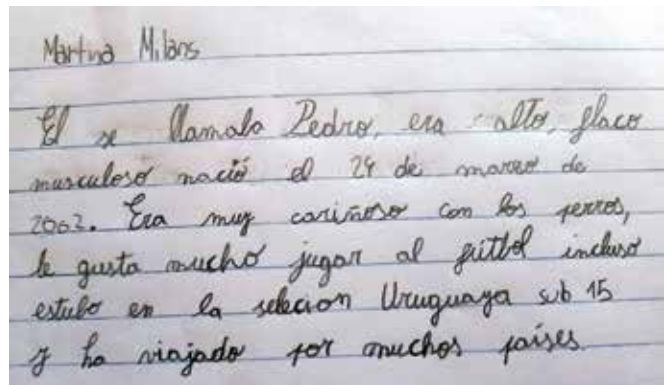 Martina Milans
El se llamaba Pedro, era alto, flaco
musculoso nació el 24 de marzo de
2002. Era muy cariñoso con los perros,
le gusta mucho jugar al fútbol incluso
estubo en la selecion Uruguaya sub 15
y ha viajado por muchos países